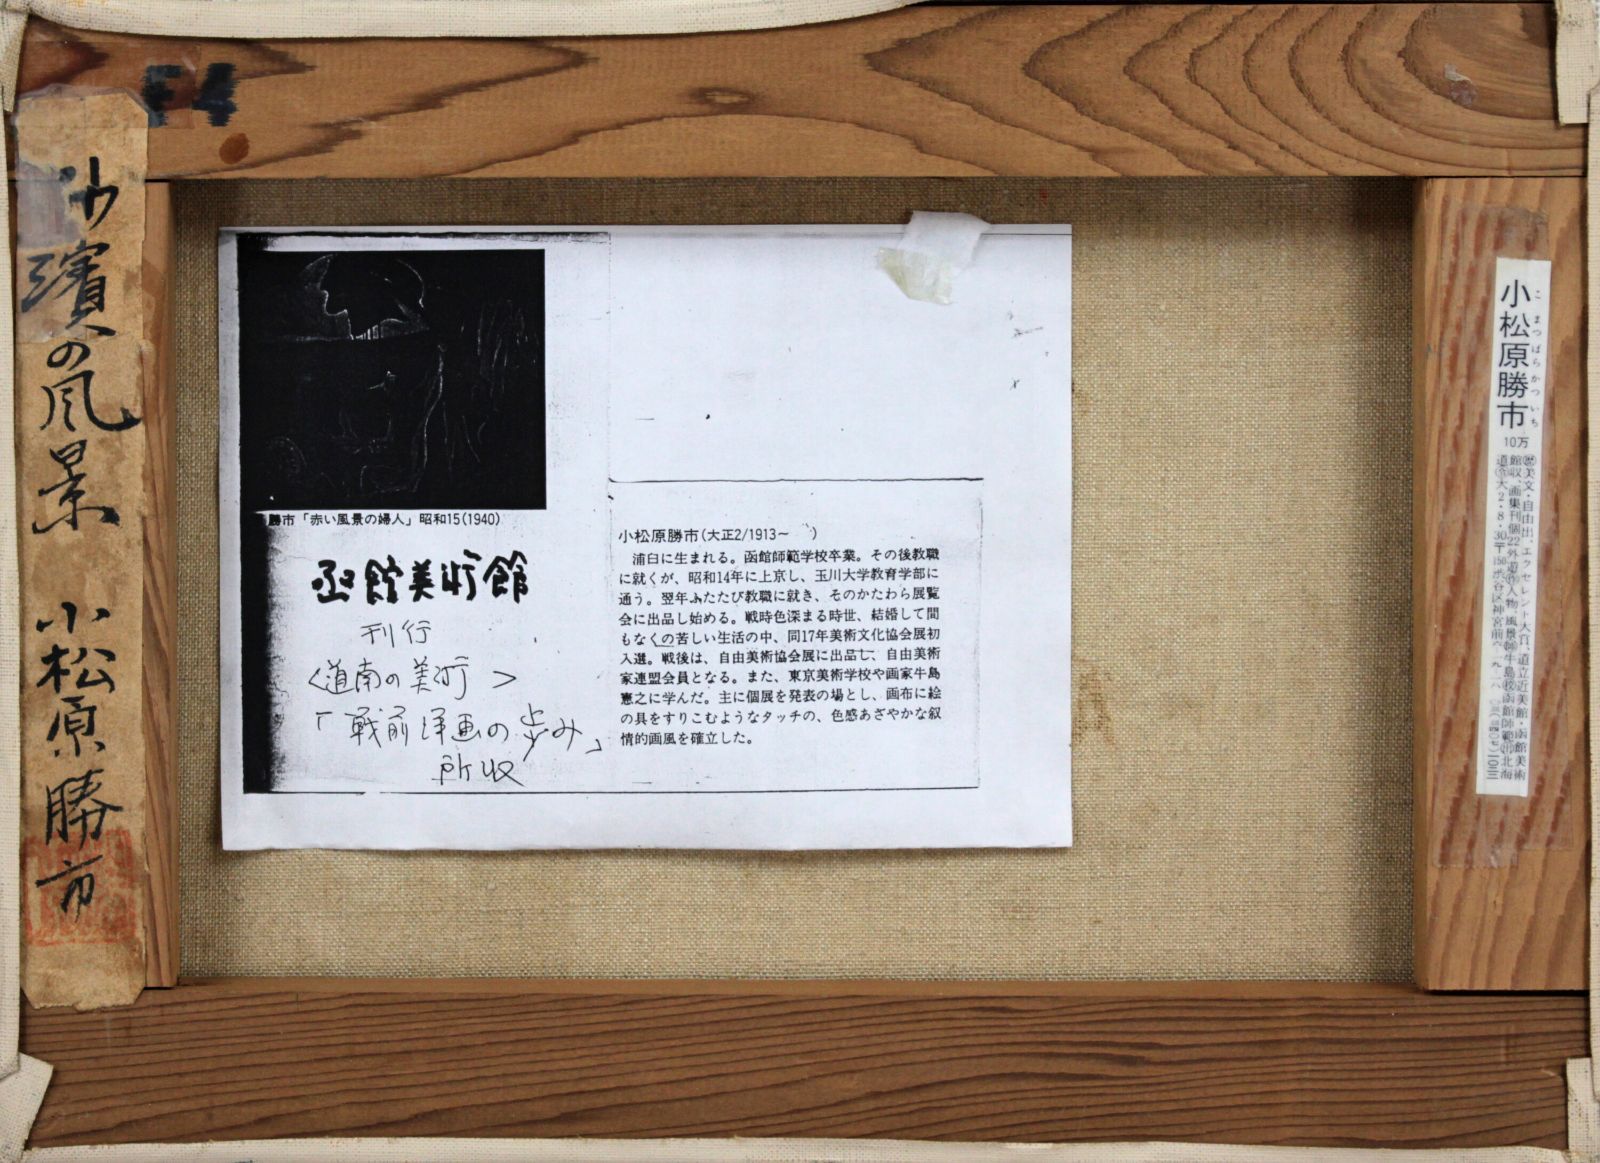 F4
沙濱の風景 小松原勝市
勝市「赤い風景の婦人」昭和15(1940)
函館美術館
刊行
<道南の美術>
「戦前洋画の歩み」
所収
小松原勝市(大正2/1913~ )
浦臼に生まれる。函館師範学校卒業。その後教職
に就くが、昭和14年に上京し、玉川大学教育学部に
通う。翌年ふたたび教職に就き、そのかたわら展覧
会に出品し始める。戦時色深まる時世、結婚して間
もなくの苦しい生活の中、同17年美術文化協会展初
入選。戦後は、自由美術協会展に出品し、自由美術
家連盟会員となる。また、東京美術学校や画家牛島
憲之に学んだ。主に個展を発表の場とし、画布に絵
の具をすりこむようなタッチの、色感あざやかな叙
情的画風を確立した。
こまつばらかついち
小松原勝市
10万
美文・自由出、エクセレント大賞、道立近美館・函館美術
館収、画集刊個22外遊 人物、風景 牛島 函館師範 北海
道 大2・8・30〒150渋谷区神宮前六